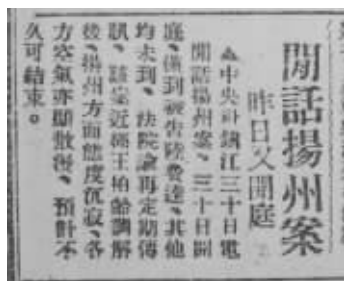 閒話揚州案
昨日又開庭
▲中央社鎮江三十日電
閒話揚州案、三十日開
庭、僅到被告陸費逵、其他
均未到、法院諭再定期傳
訊、該案近經王柏齡調解
後、揚州方面態度沉寂、各
方空氣亦顯散漫、預計不
久可結束。